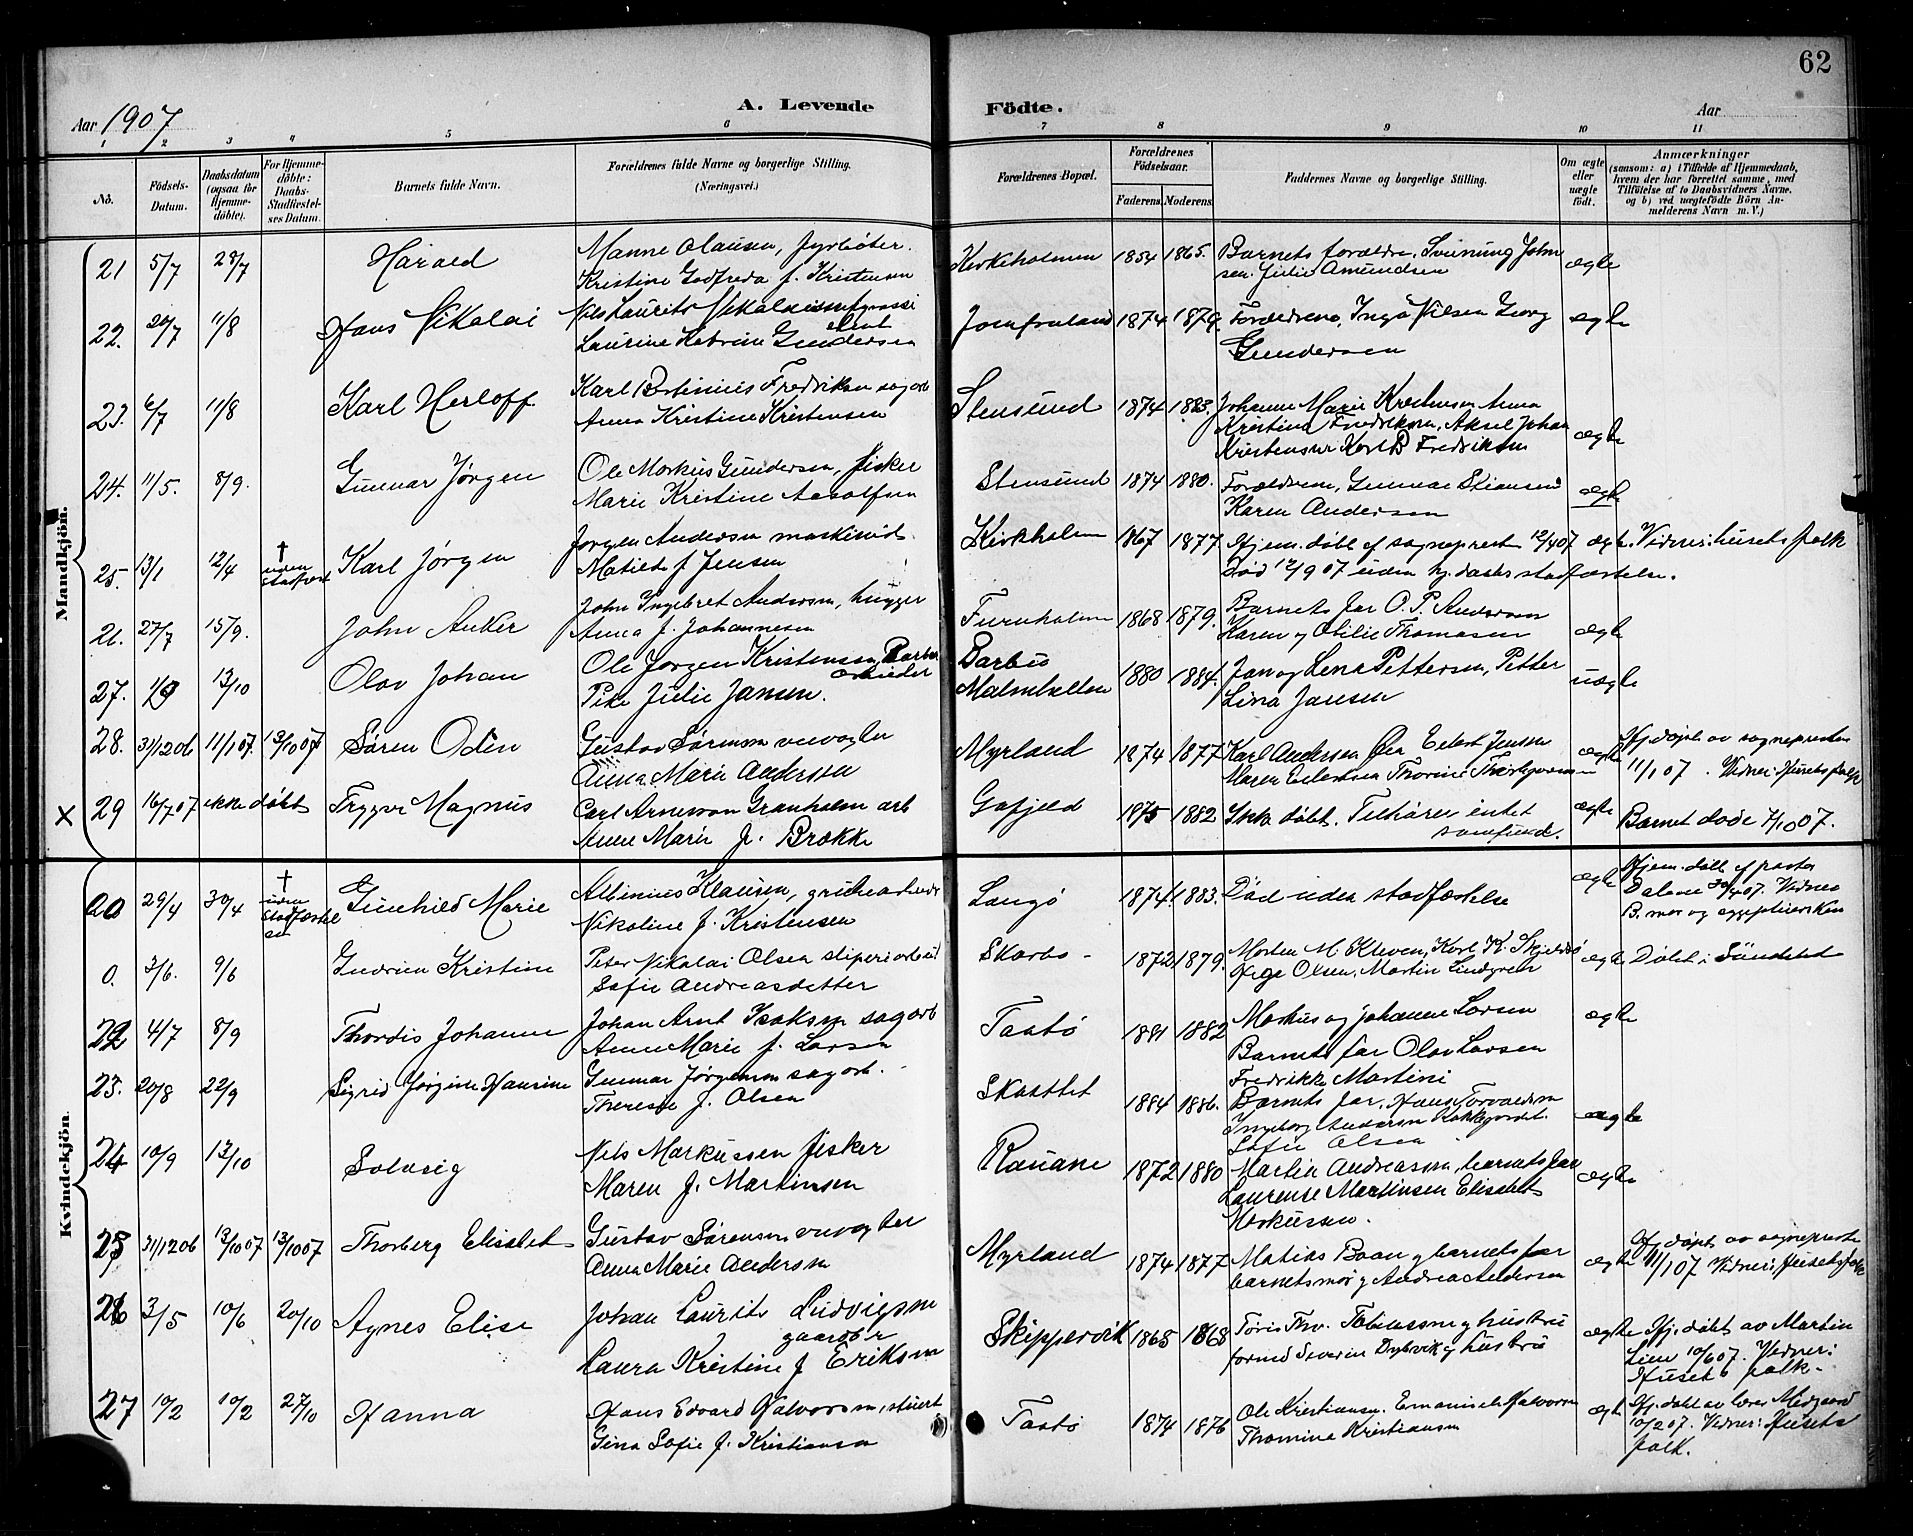 62
Aar 1907
A. Levende
Födte.
Aar
1 2 3 4 5 6 7 8 9 10 11
No.
Födsels-Datum.
Daabsdatum (ogsaa for Hjemme-döbte).
For Hjemme-döbte: Daabs-Stadfæstel-ses Datum.
Barnets fulde Navn.
Forældrenes fulde Navne og borgerlige Stilling. (Næringsvei.)
Forældrenes Bopæl.
Forældrenes Födselsaar.
Faderens Moderens
Faddernes Navne og borgerlige Stilling.
Om ægte eller uægte födt.
Anmærkninger
(saasom: a) i Tilfælde af Hjemmedaab,
hvem der har forrettet samme, med
Tilföielse af to Daabsvidners Navne.
og b) ved uægtefödte Börn An-
melderens Navn m. V.)
Mandkjön.
21 5/7 28/7 Harald
Manne Olausen, fyrbøter.
Kristine Godfreda f. Kristensen
Kirkeholmen 1854 1865.
Barnets forældre, Sveinung John
sen. Julie Amundsen
ægte
22. 20/7 11/8 Hans Nikolai
Nils Laurits Nikolaisen
Laurine Katrine Gundersen
Jomfruland 1874 1879.
Forældrene, Inga Nilsen Georg
Gundersen
ægte
23. 6/7 11/8 Karl Herloff
Karl Bertinius Fredriksen sagarb
Anna Kristine Kristensen
Stensund 1874 1883.
Johanne Marie Kristensen Anna
Kristine Fredriksen, Aksel Johan
Kristensen Karl B Fredriksen
ægte
24. 11/5. 8/9. Gunnar Jørgen
Ole Markus Gundersen, fisker
Marie Kristine Aasolfsen
Stensund 1874 1880.
Forældrene, Gunnar Stiansen
Karen Andersen
ægte
25. 13/1 12/4 † uden stadfæst Karl Jørgen
Jørgen Andersen maskinist
Matilde f Jensen
Kirkholm 1867 1877
Hjem. døbt af sogneprest 12/4 07
Død 12/9 07 uden hj. daabs stadfæstelse.
ægte. Vidner: husets folk
26. 27/7 15/9. John Anker
John Ingebret Andersen, hugger
Anna f. Johannesen
Furuholm 1868 1879.
Barnets far O. P. Andersen
Karen og Otilie Thomasen
ægte
27. 1/9 13/10 Olav Johan
Ole Jørgen Kristensen, arbeider
Pike Julie Jansen.
Barbu
Malmhelten 1880 1884.
Jan og Lena Pettersen, Petter
Lina Jansen
uægte
28. 31/12 06 11/1 07. 13/10 07 Søren Odin
Gustav Sørensen
Anna Marie Andersen
Myrland 1874 1877
Karl Andersen Øea Edert Jensen
Maren Thorine
ægte
Hj. døpt av sognepresten
11/1 07. Vidner: Husets folk
X 29 16/7 07 ikke døbt Trygve Magnus
Carl Arnesson Granholm arb
Anne Marie f. Brokke
Gofjeld 1875 1882
Ikke døbt. Tilhører intet
samfund.
ægte
Barnet døde 7/10 07.
Kvindekjön.
20 29/4 30/4 † uden stadfæstel sen Gunhild Marie
Albinius Klausen, grubearbeider
Nikoline f. Kristensen
Langø 1874. 1883.
Død uden stadfæstelse
ægte
Hjem. døbt af pastor
Dalene 30/4 07. Vidner
B. mor og
0. 3/6. 9/6 Gudrun Kristine
Peter Nikolai Olsen sliperiarbeid
Sofie Andreasdatter
Skarbo - 1872 1879.
Morten M. Kleven, Karl K. Skjeldsø
Helga Olsen, Martin Lindgren
ægte
Døbt i Søndeled
22 4/7 8/9 Thordis Johanne
Johan Arnt Isaksen sagarb
Anne Marie f. Larsen
Taatø 1881 1882
Markus og Johanne Larsen
Barnets far Olav Larsen
Fredrikke Martini
ægte
23. 20/8 22/9 Sigrid Jørgine Hansine
Gunnar Jørgensen sagarb.
Therese f. Olsen
Skaattet 1884 1886.
Barnets far, Hans Torvaldsen
Ingeborg Andersen
Sofie Olsen
ægte
24 10/9 13/10 Solveig
Nils Markussen fisker
Maren f. Martinsen
Rauane 1872 1880
Martin Andreasen, barnets far
Laurense Martinsen Elisabet
Markussen.
ægte
25 31/12 06 13/10 07 13/10 07 Thorberg Elisabet
Gustav Sørensen
Anna Marie Andersen
Myrland 1874 1877
Matias Boan g barnets far
barnets mor g Andrea Andersen
ægte
Hj. døpt av sogneprest
11/1 07. Vidner: Husets folk
26 3/5 10/6 20/10 Agnes Elise
Johan Laurits Ludvigsen
gaardbr
Laura Kristine f Eriksen
Skippervik 1865 1868
Tøris Thv. Tobiassen g hustru
formed Severin Dybvik g hustru
ægte
Hj. døbt av Martin
Lien 10/6 07. Vidner:
Husets folk.
27 10/2 10/2 27/10 Hanna
Hans Edvard Halvorsen, stuert
Gina Sofie f. Kristiansen
Taatø 1874 1876
Ole Kristiansen. Halvorsen
Thomine Kristiansen
ægte
Hj. døbt av lærer Medgaard
10/2 07. Vidner: Husets
folk.